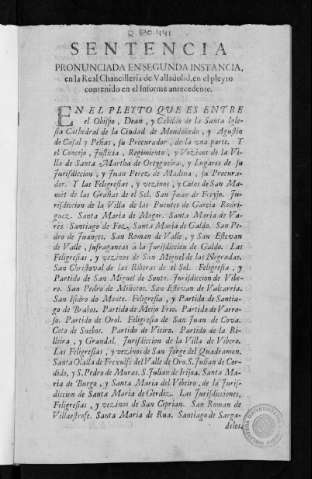 SENTENCIA
PRONUNCIADA EN SEGUNDA INSTANCIA,
en la Real Chancilleria de Valladolid, en el pleyto
contenido en el Informe antecedente.
EN EL PLEYTO QUE ES ENTRE
el Obispo, Dean, y Cabildo de la Santa Igle-
sia Cathedral de la Ciudad de Mondoñedo, y Agustin
de Cosal y Peñas, su Procurador, de la vna parte. Y
el Concejo, Justicia, Regimiento, y Vezinos de la Vi-
lla de Santa Martha de Ortigueira, y Lugares de su
Jurisdiccion, y Juan Perez de Medina, su Procura-
dor. Y las Feligresias, y vezinos, y Cotos de San Ma-
med de las Grallas de el Sol. San Juan de Freyjo. Ju-
risdiccion de la Villa de las Puentes de Garcia Rodri-
guez. Santa Maria de Mogor. Santa Maria de Va-
res. Santiago de Foz, Santa Maria de Galdo. San Pe-
dro de Juances. San Roman de Valle, y San Estevan
de Valle, sufraganeas à la Jurisdiccion de Galdo. Las
Feligresias, y vezinos de San Miguel de las Negradas.
San Christoval de las Riberas de el Sol. Feligresia, y
Partido de San Miguel de Coure. Jurisdiccion de Vibe-
ro. San Pedro de Miñotos. San Estevan de Valcarria.
San Isidro de Monte. Feligresia, y Partido de Santia-
go de Brabos. Partido de Mejo Frio. Partido de
Partido de Orol. Feligresia de San Juan de Cova.
Coto de Suelos. Partido de Viveiro. Partido de la Ri-
beira, y Grandal. Jurisdiccion de la Villa de Vibero.
Las Feligresias, y vezinos de San Jorge del Quadramon.
Santa Olalla de Frexulfe del Valle de Oro. S. Julian de Cer-
dido, y S. Pedro de Muras. S. Julian de Irijoa. Santa Ma-
ria de Burgo, y Santa Maria del Vibeiro, de la Juris-
diccion de Santa Maria de Gerdiz. Las Jurisdicciones,
Feligresias, y vezinos de San Ciprian. San Roman de
Villaestrofe. Santa Maria de Rua. Santiago de Sarga-
delos,